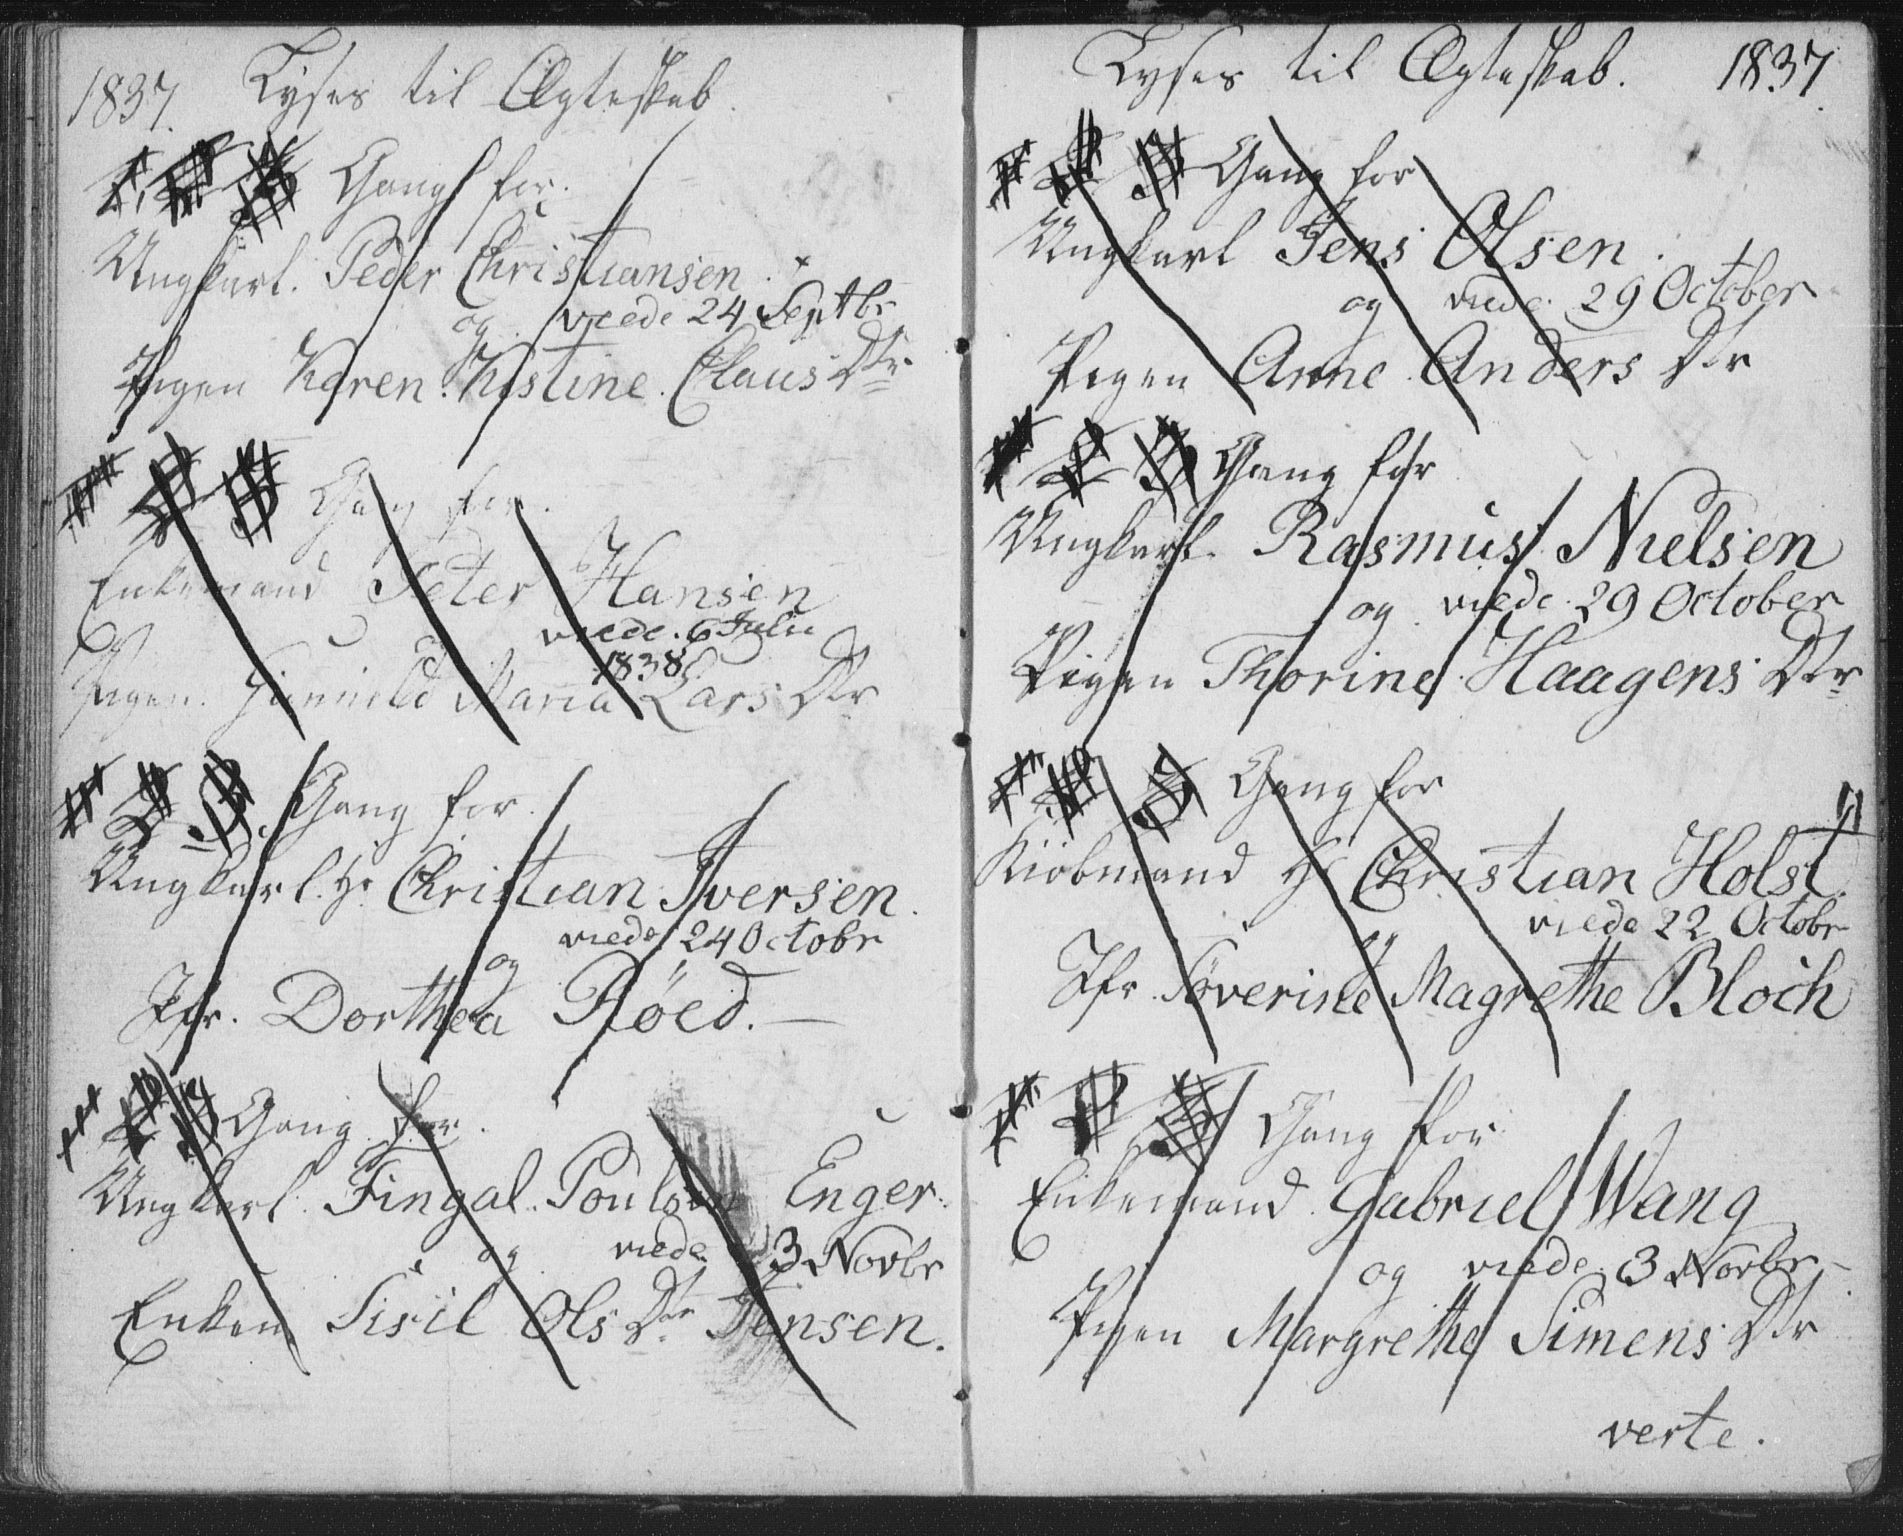 1837. Lyses til Ægteskab.
1. 2 3 Gang for.
Ungkarl. Peder Christiansen.
og viede 24 Septbr
Pigen Karen Kistine Claus Dtr
1 2 3 Gang for.
Enkemand Peter Hansen
viede. 6 Julii
1838
Pigen. Gunnild Maria Lars Dtr
1 2 3. Gang for.
Ungkarl. Hr Christian Iversen.
viede 24 Octobr
og
Jfr. Dorthea Röed.
1 2 3 Gang for.
Ungkarl. Fingal. Poulsen Enger.
og viede 3 Novbr
Enken Sisil Ols Dtr Jensen.
Lyses til Ægteskab. 1837.
1 2 3 Gang for
Ungkarl Jens Olsen.
og viede. 29 October
Pigen Anne Anders Dtr
1 2 3 Gang for
Ungkarl. Rasmus Nielsen
og viede. 29 October
Pigen Thorine Haagens Dtr
1 2 3 Gang for
Kiöbmand Hr Christian Holst.
viede 22 Octobr
og
Jfr. Söverine Magrethe Bloch
1 2 3 Gang for
Enkemand Gabriel Wang
og viede. 3 Novbr
Pigen Margrethe Simens Dtr
verte.